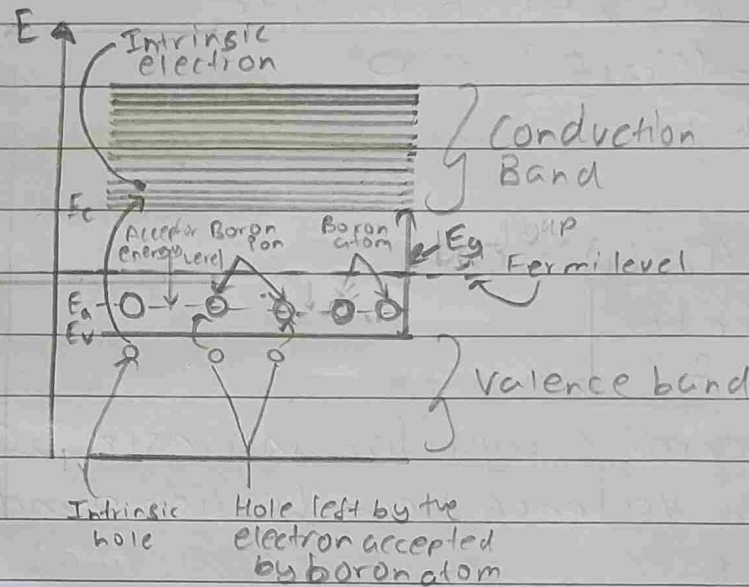 E
Intrinsic
electron
Conduction
Band
Ec
Acceptor
energy level
Boron
ion
Boron
atom
Eg
Fermi level
Ea
Ev
Valence band
Intrinsic
hole
Hole left by the
electron accepted
by boron atom